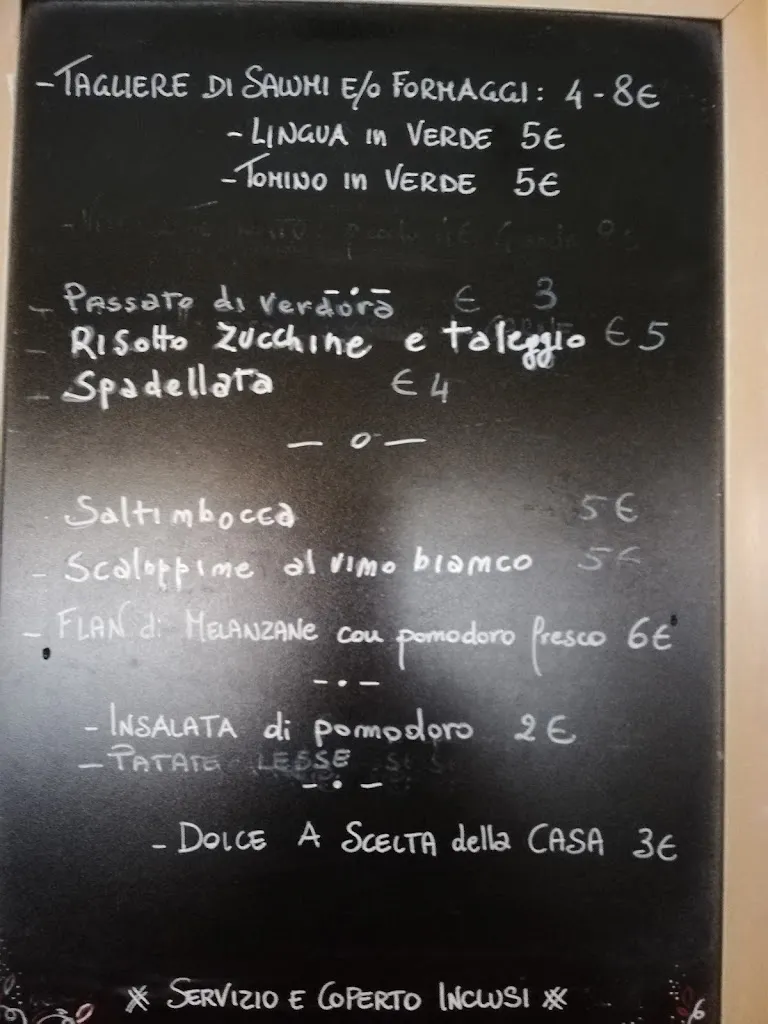 - TAGLIERE DI SALUMI E/O FORMAGGI: 4 - 8€
- LINGUA in VERDE 5€
- TOMINO in VERDE 5€
- Passato di verdura € 3
- Risotto zucchine e taleggio € 5
- Spadellata € 4
— o —
Saltimbocca 5€
- Scaloppine al vino bianco 5€
- FLAN di MELANZANE con pomodoro fresco 6€
- . -
- INSALATA di pomodoro 2€
- PATATE LESSE
- . -
- DOLCE A SCELTA della CASA 3€
* SERVIZIO E COPERTO INCLUSI *